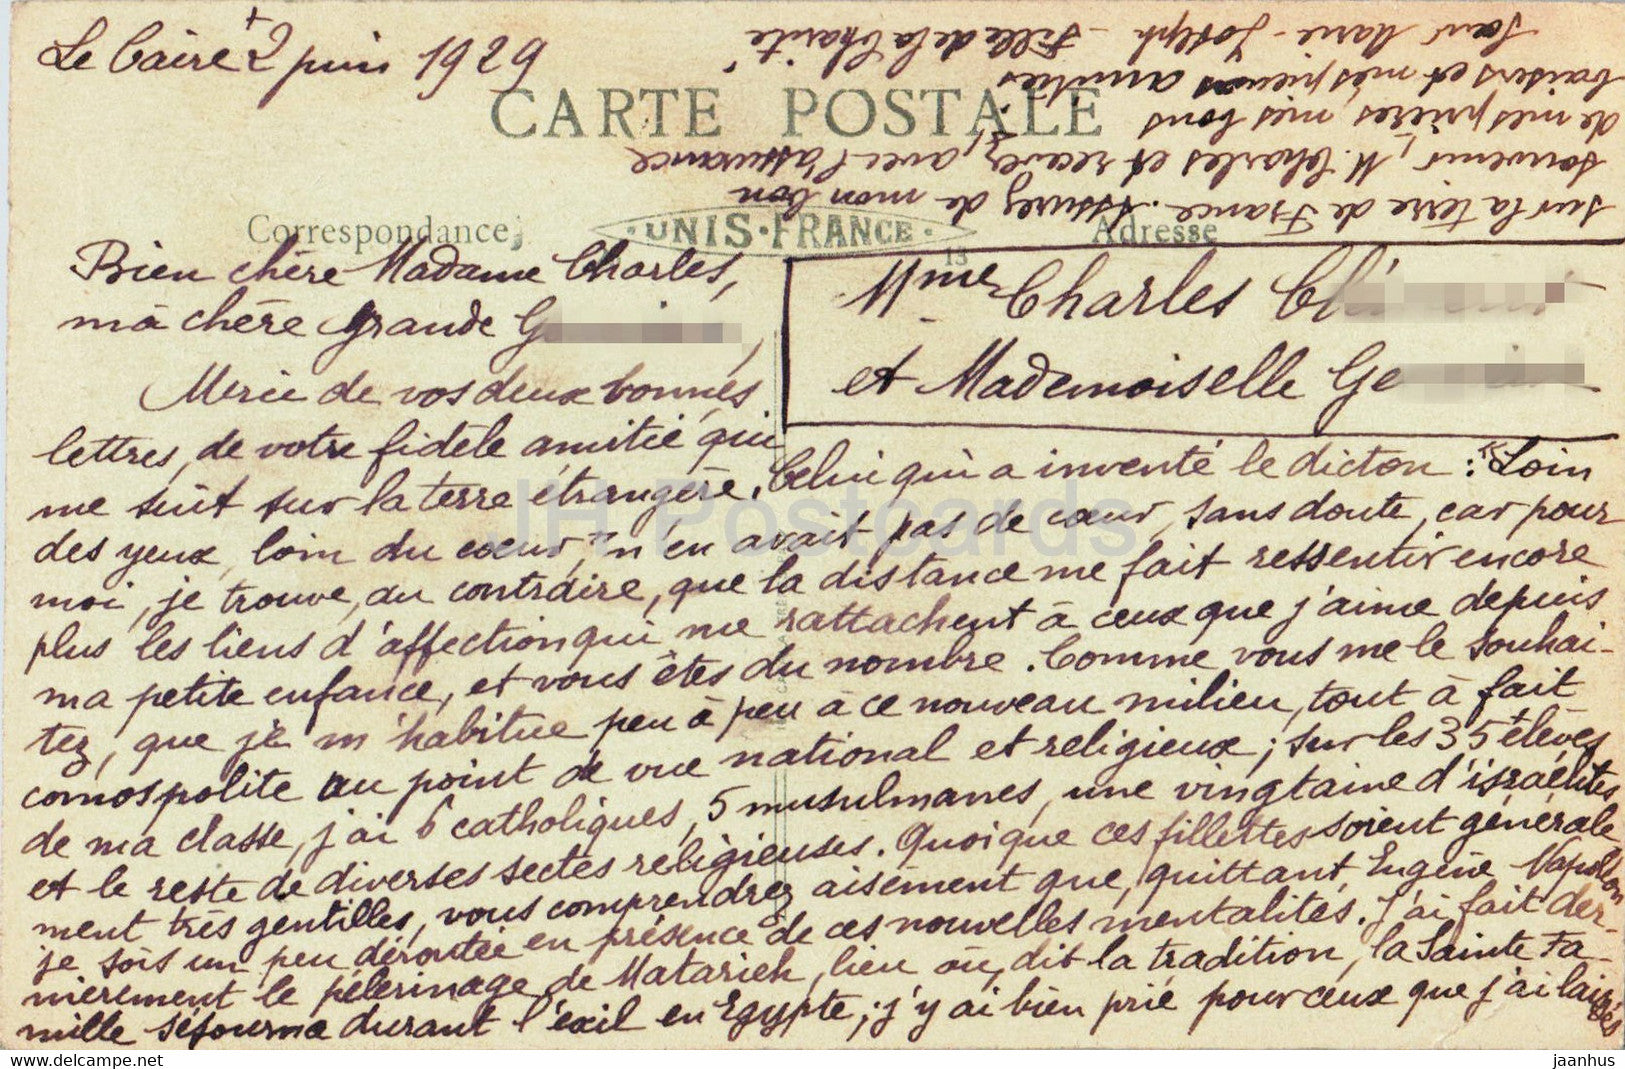 Le Caire + 2 juin 1929
CARTE POSTALE
Correspondance
UNIS-FRANCE
13
Adresse
Mme Charles Cl
et Mademoiselle Ge
Bien chère Madame Charles,
ma chère grande G
Merci de vos deux bonnes
lettres, de votre fidèle amitié qui
me suit sur la terre étrangère. Celui qui a inventé le dicton : "Loin
des yeux, loin du cœur," n'en avait pas de cœur, sans doute, car pour
moi, je trouve, au contraire, que la distance me fait ressentir encore
plus les liens d'affection qui me rattachent à ceux que j'aime depuis
ma petite enfance, et vous êtes du nombre. Comme vous me le souhai-
tez, que je m'habitue peu à peu à ce nouveau milieu, tout à fait
comospolite au point de vue national et religieux; sur les 35 élèves
de ma classe, j'ai 6 catholiques, 5 musulmanes, une vingtaine d'israélites
et le reste de diverses sectes religieuses. Quoique ces fillettes soient générale-
ment très gentilles, vous comprendrez aisément que, quittant Eugène Napoléon
je sois un peu déroutée en présence de ces nouvelles mentalités. J'ai fait der-
nièrement le pélerinage de Matarieh, lieu où, dit la tradition, la Sainte Fa-
mille séjourna durant l'exil en Egypte; j'y ai bien prié pour ceux que j'ai laissés
sur la terre de France. Assurez de mon bon
souvenir, M. Charles et recevez, avec l'assurance
de mes prières, mes bons
baisers et mes pieuses amitiés
Sœur Marie-Joseph - Fille de la Charité
JH Postcards
Website: delcampe.net
jaanhus